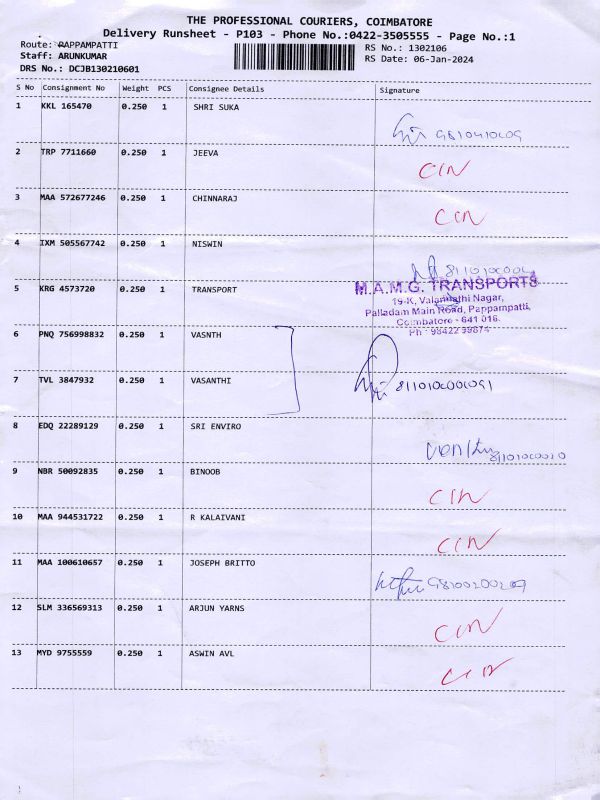 THE PROFESSIONAL COURIERS, COIMBATORE
Delivery Runsheet - P103 - Phone No.:0422-3505555 - Page No.:1
Route: PAPPAMPATTI
RS No.: 1302106
Staff: ARUNKUMAR
RS Date: 06-Jan-2024
DRS No.: DCJB130210601
S No Consignment No Weight PCS Consignee Details Signature
1 KKL 165470 0.250 1 SHRI SUKA
2 TRP 7711660 0.250 1 JEEVA CIN
3 MAA 572677246 0.250 1 CHINNARAJ CIN
4 IXM 505567742 0.250 1 NISWIN
5 KRG 4573720 0.250 1 TRANSPORT
M.A.M.G. TRANSPORTS
19-K, Nagar,
Palladam Main Road, Pappampatti,
Coimbatore - 641 016.
Ph : 98422 39874
6 PNQ 756998832 0.250 1 VASNTH
7 TVL 3847932 0.250 1 VASANTHI
8 EDQ 22289129 0.250 1 SRI ENVIRO
9 NBR 50092835 0.250 1 BINOOB CIN
10 MAA 944531722 0.250 1 R KALAIVANI CIN
11 MAA 100610657 0.250 1 JOSEPH BRITTO
12 SLM 336569313 0.250 1 ARJUN YARNS CIN
13 MYD 9755559 0.250 1 ASWIN AVL CIN